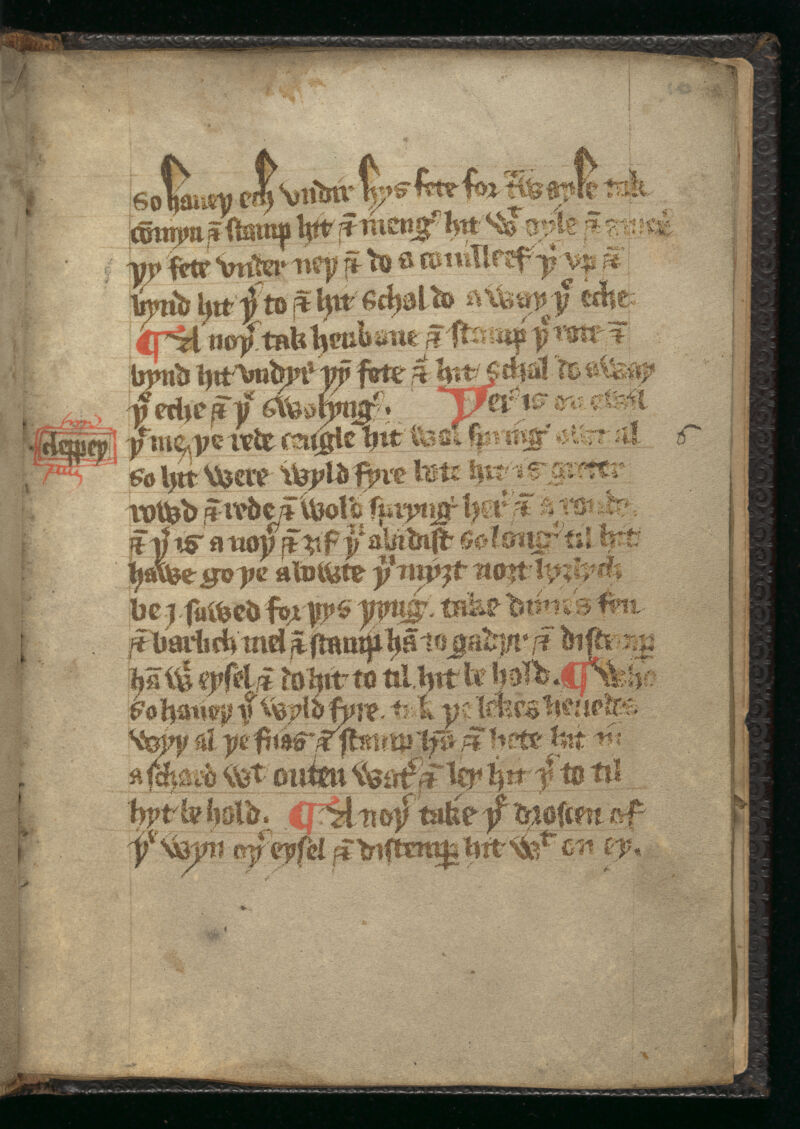 So haueþ ech vndir hys fete for
comyn & stamp hit & meng hit wt oyle &
þy fete vnder neþ & do a to vp &
bynd hit þr to & hit schal do a way þe eche
¶ A noþr tak henbane & stamp þe rote &
bynd hit vndyr þy fete & hit schal do away
þe eche & þe swolyng. Þer is on
cleppeþ
þt me þe rede hit wol spring al
so hit were wyld fyre bote hit is gretter
rowd & rede & wold spryng her & a
& þr is a noþr & ȝif þu abidist so long til hit
hawe go þe abowte þu myȝt noȝt lyȝlych
be i sawed for þys þyng. take fen
& barlich mel & stamp hã to gadyr & distemp
hã wt eysel & do hit to til hit be hold. ¶ Who
so haueþ þe wyld fyre. tak þe lekes heuedes
wyþ al þe & stamp hã & hete hit in
a schard wt outen wat & ley hit þr to til
hyt be hold. ¶ A noþr take þe drosten of
þe wyn oþr eysel & distemp hit wt an ey.